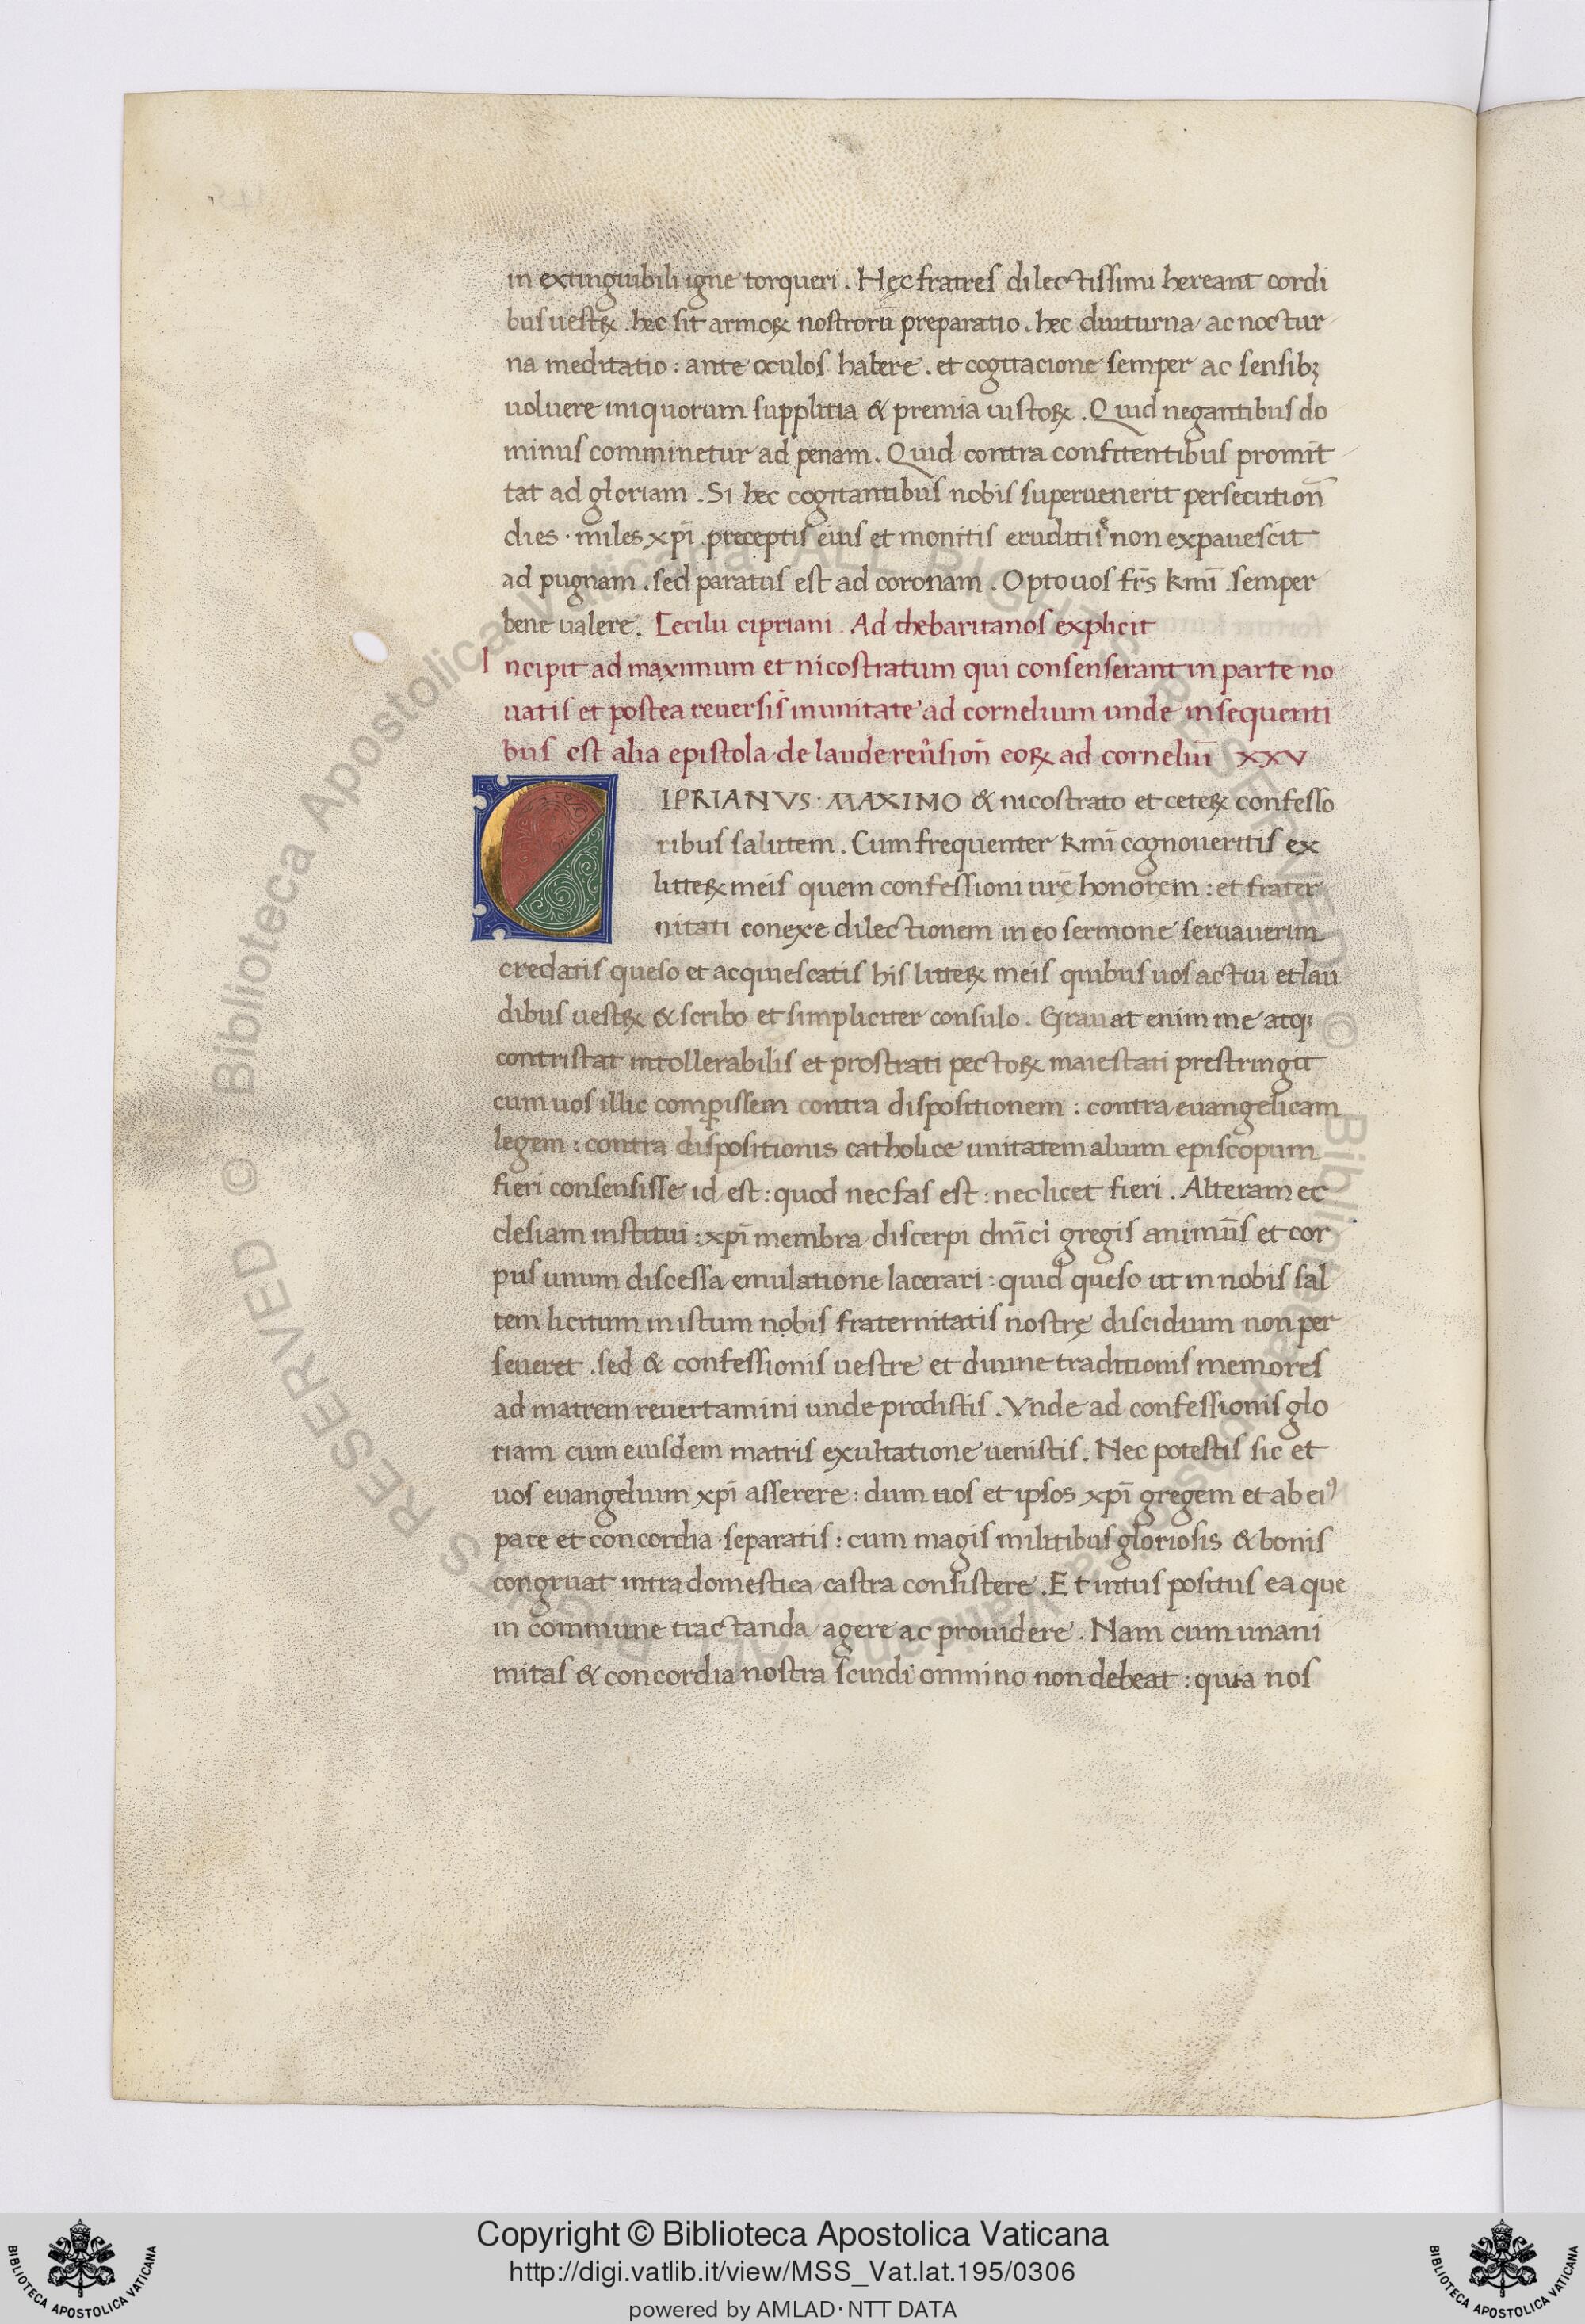 in extinguibili igne torqueri. Hęc fratres dilectissimi hereant cordi
bus uestꝝ. hec sit armoꝝ nostrorū preparatio. hec diuturna ac noctur
na meditatio: ante oculos habere. et cogitacione semper ac sensibꝫ
uoluere iniquorum supplitia & premia iustoꝝ. Quid negantibus do
minus comminetur ad penam. Quid contra confitentibus promit
tat ad gloriam. Si hec cogitantibus nobis superuenerit persecution̄
dies. miles xp̄i preceptis eius et monitis eruditis non expauescit
ad pugnam. sed paratus est ad coronam. Opto uos fr̄s km̄i semper
bene ualere. Cecilii cipriani. Ad thebaritanos explicit
Incipit ad maximum et nicostratum qui consenserant in parte no
uatis et postea reuersis in unitate ad cornelium unde in sequenti
bus est alia epistola de laude reu̅sion̄ eoꝝ ad corneliū XXV
CIPRIANVS. MAXIMO & nicostrato et ceteꝝ confesso
ribus salutem. Cum frequenter km̄i cognoueritis ex
litteꝝ meis quem confessioni ur̄ę honorem: et frater
nitati conexe dilectionem in eo sermone seruauerim
credatis queso et acquiescatis his litteꝝ meis quibus uos actui et lau
dibus uestꝝ & scribo et simpliciter consulo. Grauat enim me atqꝫ
contristat intollerabilis et prostrati pectoꝝ maiestati prestringit
cum uos illic comꝑissem contra dispositionem: contra euangelicam
legem: contra dispositionis catholice unitatem alium episcopum
fieri consensisse id est: quod nec fas est: nec licet fieri. Alteram ec
clesiam institui: xp̄i membra discerpi dn̄ici gregis animūs et cor
pus unum discessa emulatione lacerari: quid queso ut in nobis sal
tem licitum in istum nobis fraternitatis nostrę discidium non per
seueret. sed & confessionis uestre et diuine traditionis memores
ad matrem reuertamini unde prodistis. Vnde ad confessionis glo
riam cum eiusdem matris exultatione uenistis. Nec potestis sic et
uos euangelium xp̄i asserere: dum uos et ipsos xp̄i gregem et ab eiꝰ
pace et concordia separatis: cum magis militibus gloriosis & bonis
congruat intra domestica castra consistere. Et intus positus ea que
in commune tractanda agere ac prouidere. Nam cum unani
mitas & concordia nostra scindi omnino non debeat: quia nos
Copyright © Biblioteca Apostolica Vaticana
http://digi.vatlib.it/view/MSS_Vat.lat.195/0306
powered by AMLAD·NTT DATA
BIBLIOTECA APOSTOLICA VATICANA
BIBLIOTECA APOSTOLICA VATICANA
© Biblioteca Apostolica Vaticana ALL RIGHTS RESERVED
© Biblioteca Apostolica Vaticana ALL RIGHTS RESERVED